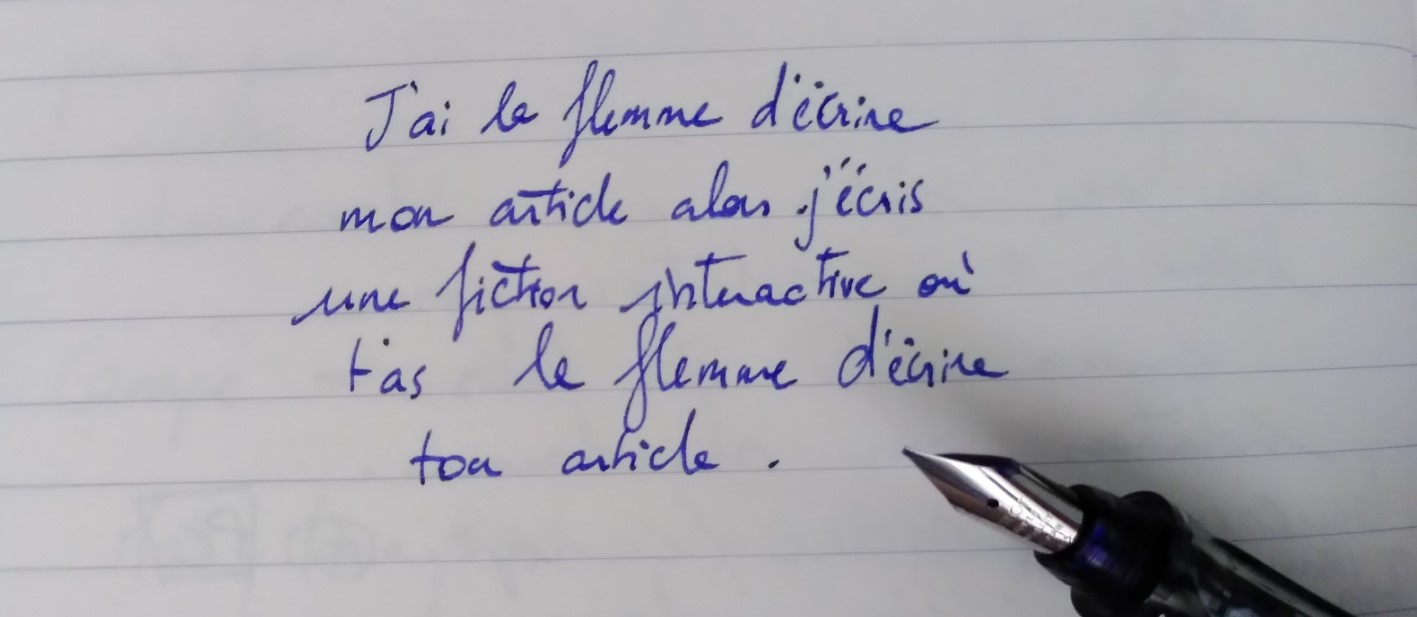 J'ai la flemme d'écrire
mon article alors j'écris
une fiction interactive où
t'as la flemme d'écrire
ton article.